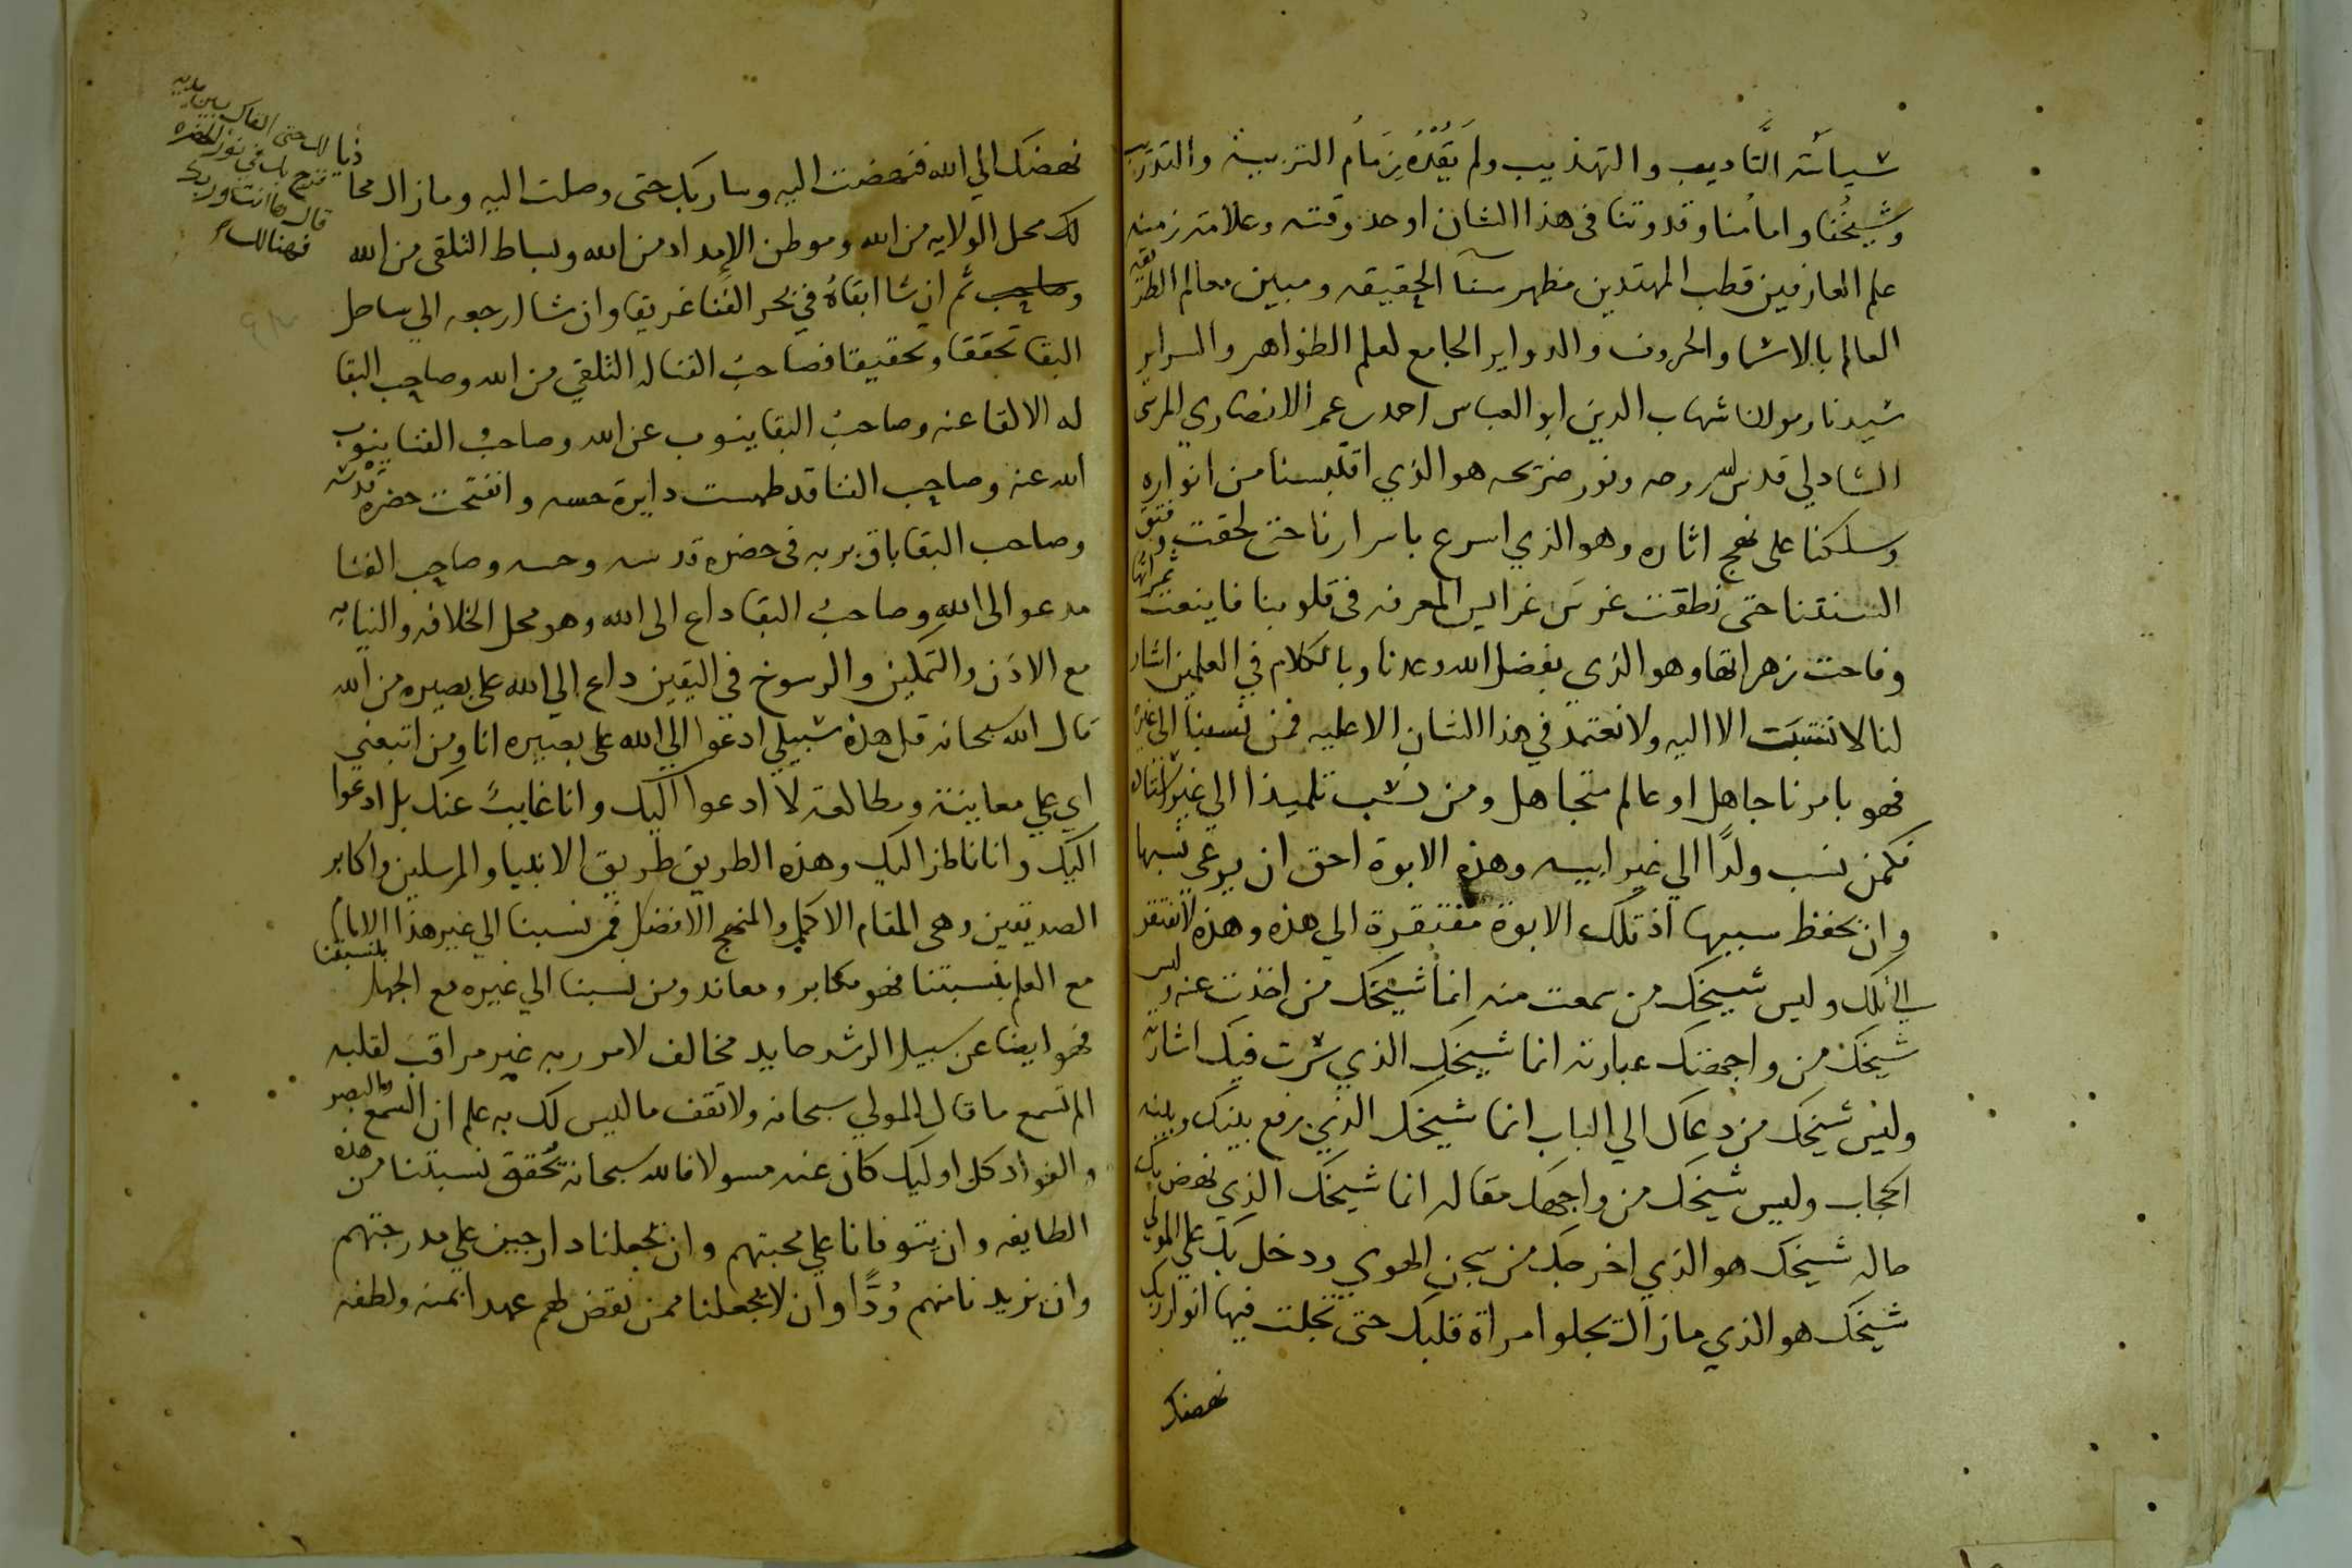 سياسة التَّاديب والتهذيب ولم يَقُدْهُ زِمَامُ التربية والتدريب
وشيخُنا وامامُنا وقدوتنا فى هذا الشان اوحد وقته وعلامة زمنه
علم العارفين قطب المهتدين مظهر سنآ الحقيقه ومبين معالم الطريقه
العالم بالاسما والحروف والدواير الجامع لعلم الظواهر والسراير
سيدنا ومولانا شهاب الدين ابو العباس احمد بن عمر الانصاري المرسى
الشادلي قدس الله روحه ونور ضريحه هو الذي اقتبسنا من انواره
وسلكنا على نهج اثاره وهو الذي اسرع باسرارنا حتى لحقت وفتق
السنتنا حتى نطقت غرسَ غرايس المعرفه فى قلوبنا فاينعت ثمراتها
وفاحت زهراتها وهو الذى بفضل الله وعدنا وبالكلام في العلمين اشار
لنا لا ننتسب الا اليه ولا نعتمد في هذا الشان الا عليه فمن نسبنا الى غيره
فهو بامرنا جاهل او عالم متجاهل ومن نسب تلميذا الي غير استاذه
فكمن نسب ولدًا الي غير ابيه وهذه الابوة احق ان يرعى نسبها
وان يحفظ سببها اذ تلك الابوة مفتقرة الي هذه وهذه لا تفتقر
الي تلك وليس شيخك من سمعت منه انما شيخك من اخذت عنه وليس
شيخك من واجهتك عبارته انما شيخك الذي سرت فيك اشارته
وليس شيخك من دعاك الي الباب انما شيخك الذي رفع بينك وبينه
الحجاب وليس شيخك من واجهك مقاله انما شيخك الذي نهض بك
حاله شيخك هو الذي اخرجك من سجن الهوي ودخل بك علي المولي
شيخك هو الذي مازال يجلوا مراة قلبك حتى تجلت فيها انوار ربك
نهضك
نهضك الي الله فنهضت اليه وسار بك حتى وصلت اليه ومازال محاذيا
لك حتى القاك بين يديه
فزج بك في نور الحضره
قال ها انت وربك
فهنالك
لك محل الولايه من الله وموطن الإمداد من الله وبساط التلقى من الله
وصاحب ثم ان شا ابقاهُ في بحر الفَنا غريقا وان شا ارجعه الي ساحل
البقا تحققا وتحقيقا فصاحبُ الفنا له التلقي من الله وصاحب البقا
له الالقا عنه وصاحبُ البقا ينوب عن الله وصاحبُ الفنا ينوب
الله عنه وصاحب الفنا قد طمست دايرة حسه وانفتحت حضرة قدسه
وصاحب البقا باق بربه فى حضرة قدسه وحسه وصاحب الفنا
مدعو الى الله وصاحبُ البقا داع الى الله وهو محل الخلافه والنيابه
مع الاذن والتمكين والرسوخ في اليقين داع الي الله على بصيره من الله
قال الله سبحانه قل هذه سبيلي ادعوا الي الله على بصيره انا ومن اتبعني
اي علي معاينة ومطالعة لا ادعوا اليك وانا غايبٌ عنك بل ادعوا
اليك وانا ناظر اليك وهذه الطريق طريق الانبيا والمرسلين واكابر
الصديقين وهى المقام الاكمل والمنهج الافضل فمن نسبنا الي غير هذا الامام
مع العلم بنسبتنا فهو مكابر ومعاند ومن نسبنا الي غيره مع الجهل بنسبتنا
فهو ايضا عن سبيل الرشد حايد مخالف لامر ربه غير مراقب لقلبه
الم تسمع ما قال المولي سبحانه ولا تقف ما ليس لك به علم ان السمع والبصر
والفواد كل اوليك كان عنه مسولا فالله سبحانه يُحقق نسبتنا من هذه
الطايفه وان يتوفانا علي محبتهم وان يجعلنا دارجين علي مدرجتهم
وان يزيدنا منهم وُدًّا وان لا يجعلنا ممن نقض لهم عهدا بمنه ولطفه